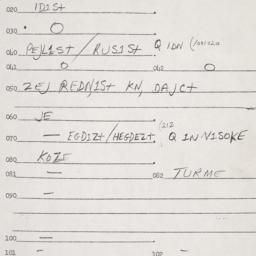 020 IDIST
030 O
040 PEJLIST / RUSIST Q IDN
041 O 042 O
050 ZEJ REDNIST KN, DAJCT
060 JE
070 — EGDIZT/HEGDEZT Q IN VISOKE
080 KOZE
081 — 082 TURME
090 —
100 —
101 — 102 —